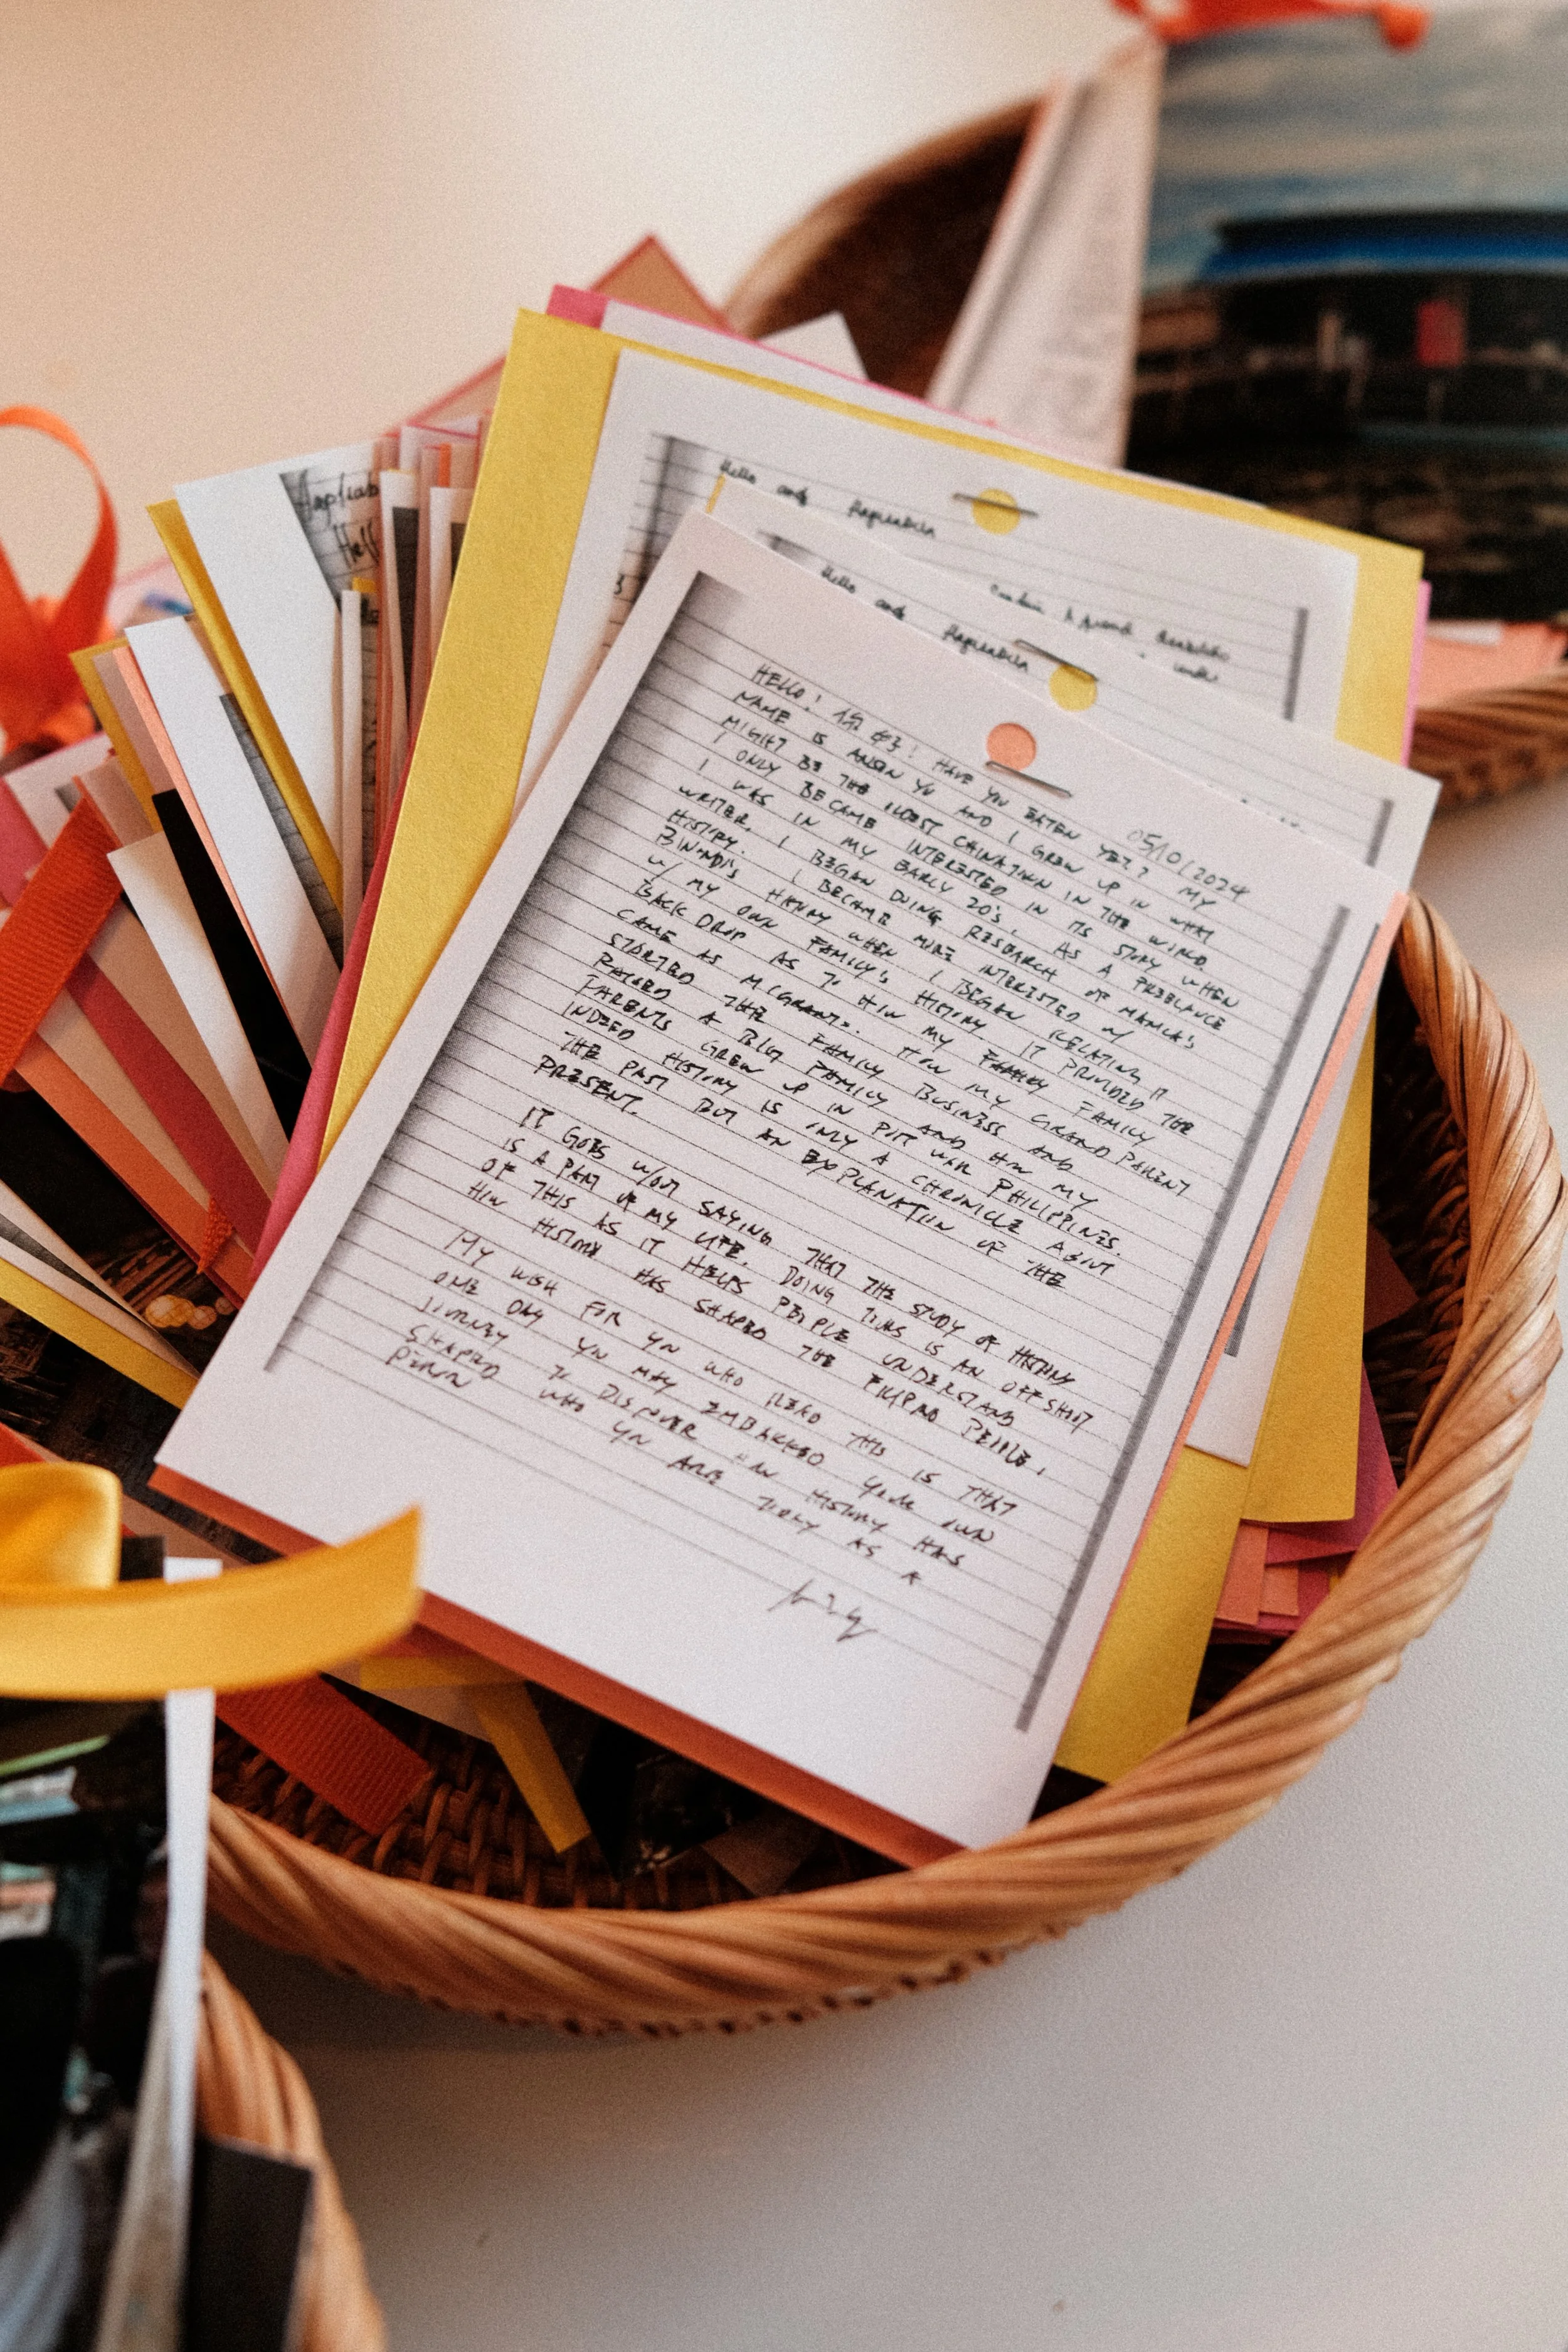 Hello and
Hello and
05/10/2024
HELLO! 你好! HAVE YOU EATEN YET? MY
NAME IS ANSON YU AND I GREW UP IN WHAT
MIGHT BE THE OLDEST CHINATOWN IN THE WORLD.
I ONLY BECAME INTERESTED IN ITS STORY WHEN
I WAS IN MY EARLY 20'S. AS A FREELANCE
WRITER, I BEGAN DOING RESEARCH OF MANILA'S
HISTORY. I BECAME MORE INTERESTED W/
BINONDO'S HISTORY WHEN I BEGAN RELATING IT
W/ MY OWN FAMILY'S HISTORY. IT PROVIDED THE
BACK DROP AS TO HOW MY FAMILY
CAME AS MIGRANTS. HOW MY GRAND PARENT
STARTED THE FAMILY BUSINESS AND
RAISED A BIG FAMILY AND HOW MY
PARENTS GREW UP IN POST WAR PHILIPPINES.
INDEED HISTORY IS ONLY A CHRONICLE ABOUT
THE PAST BUT AN EXPLANATION OF THE
PRESENT.
IT GOES W/OUT SAYING THAT THE STUDY OF HISTORY
IS A PART OF MY LIFE. DOING THIS IS AN OFFSHOOT
OF THIS AS IT HELPS PEOPLE UNDERSTAND
HOW HISTORY HAS SHAPED THE FILIPINO PEOPLE.
MY WISH FOR YOU WHO READ THIS IS THAT
ONE DAY YOU MAY EMBARKED YOUR OWN
JOURNEY TO DISCOVER HOW HISTORY HAS
SHAPED WHO YOU ARE TODAY AS A
PERSON